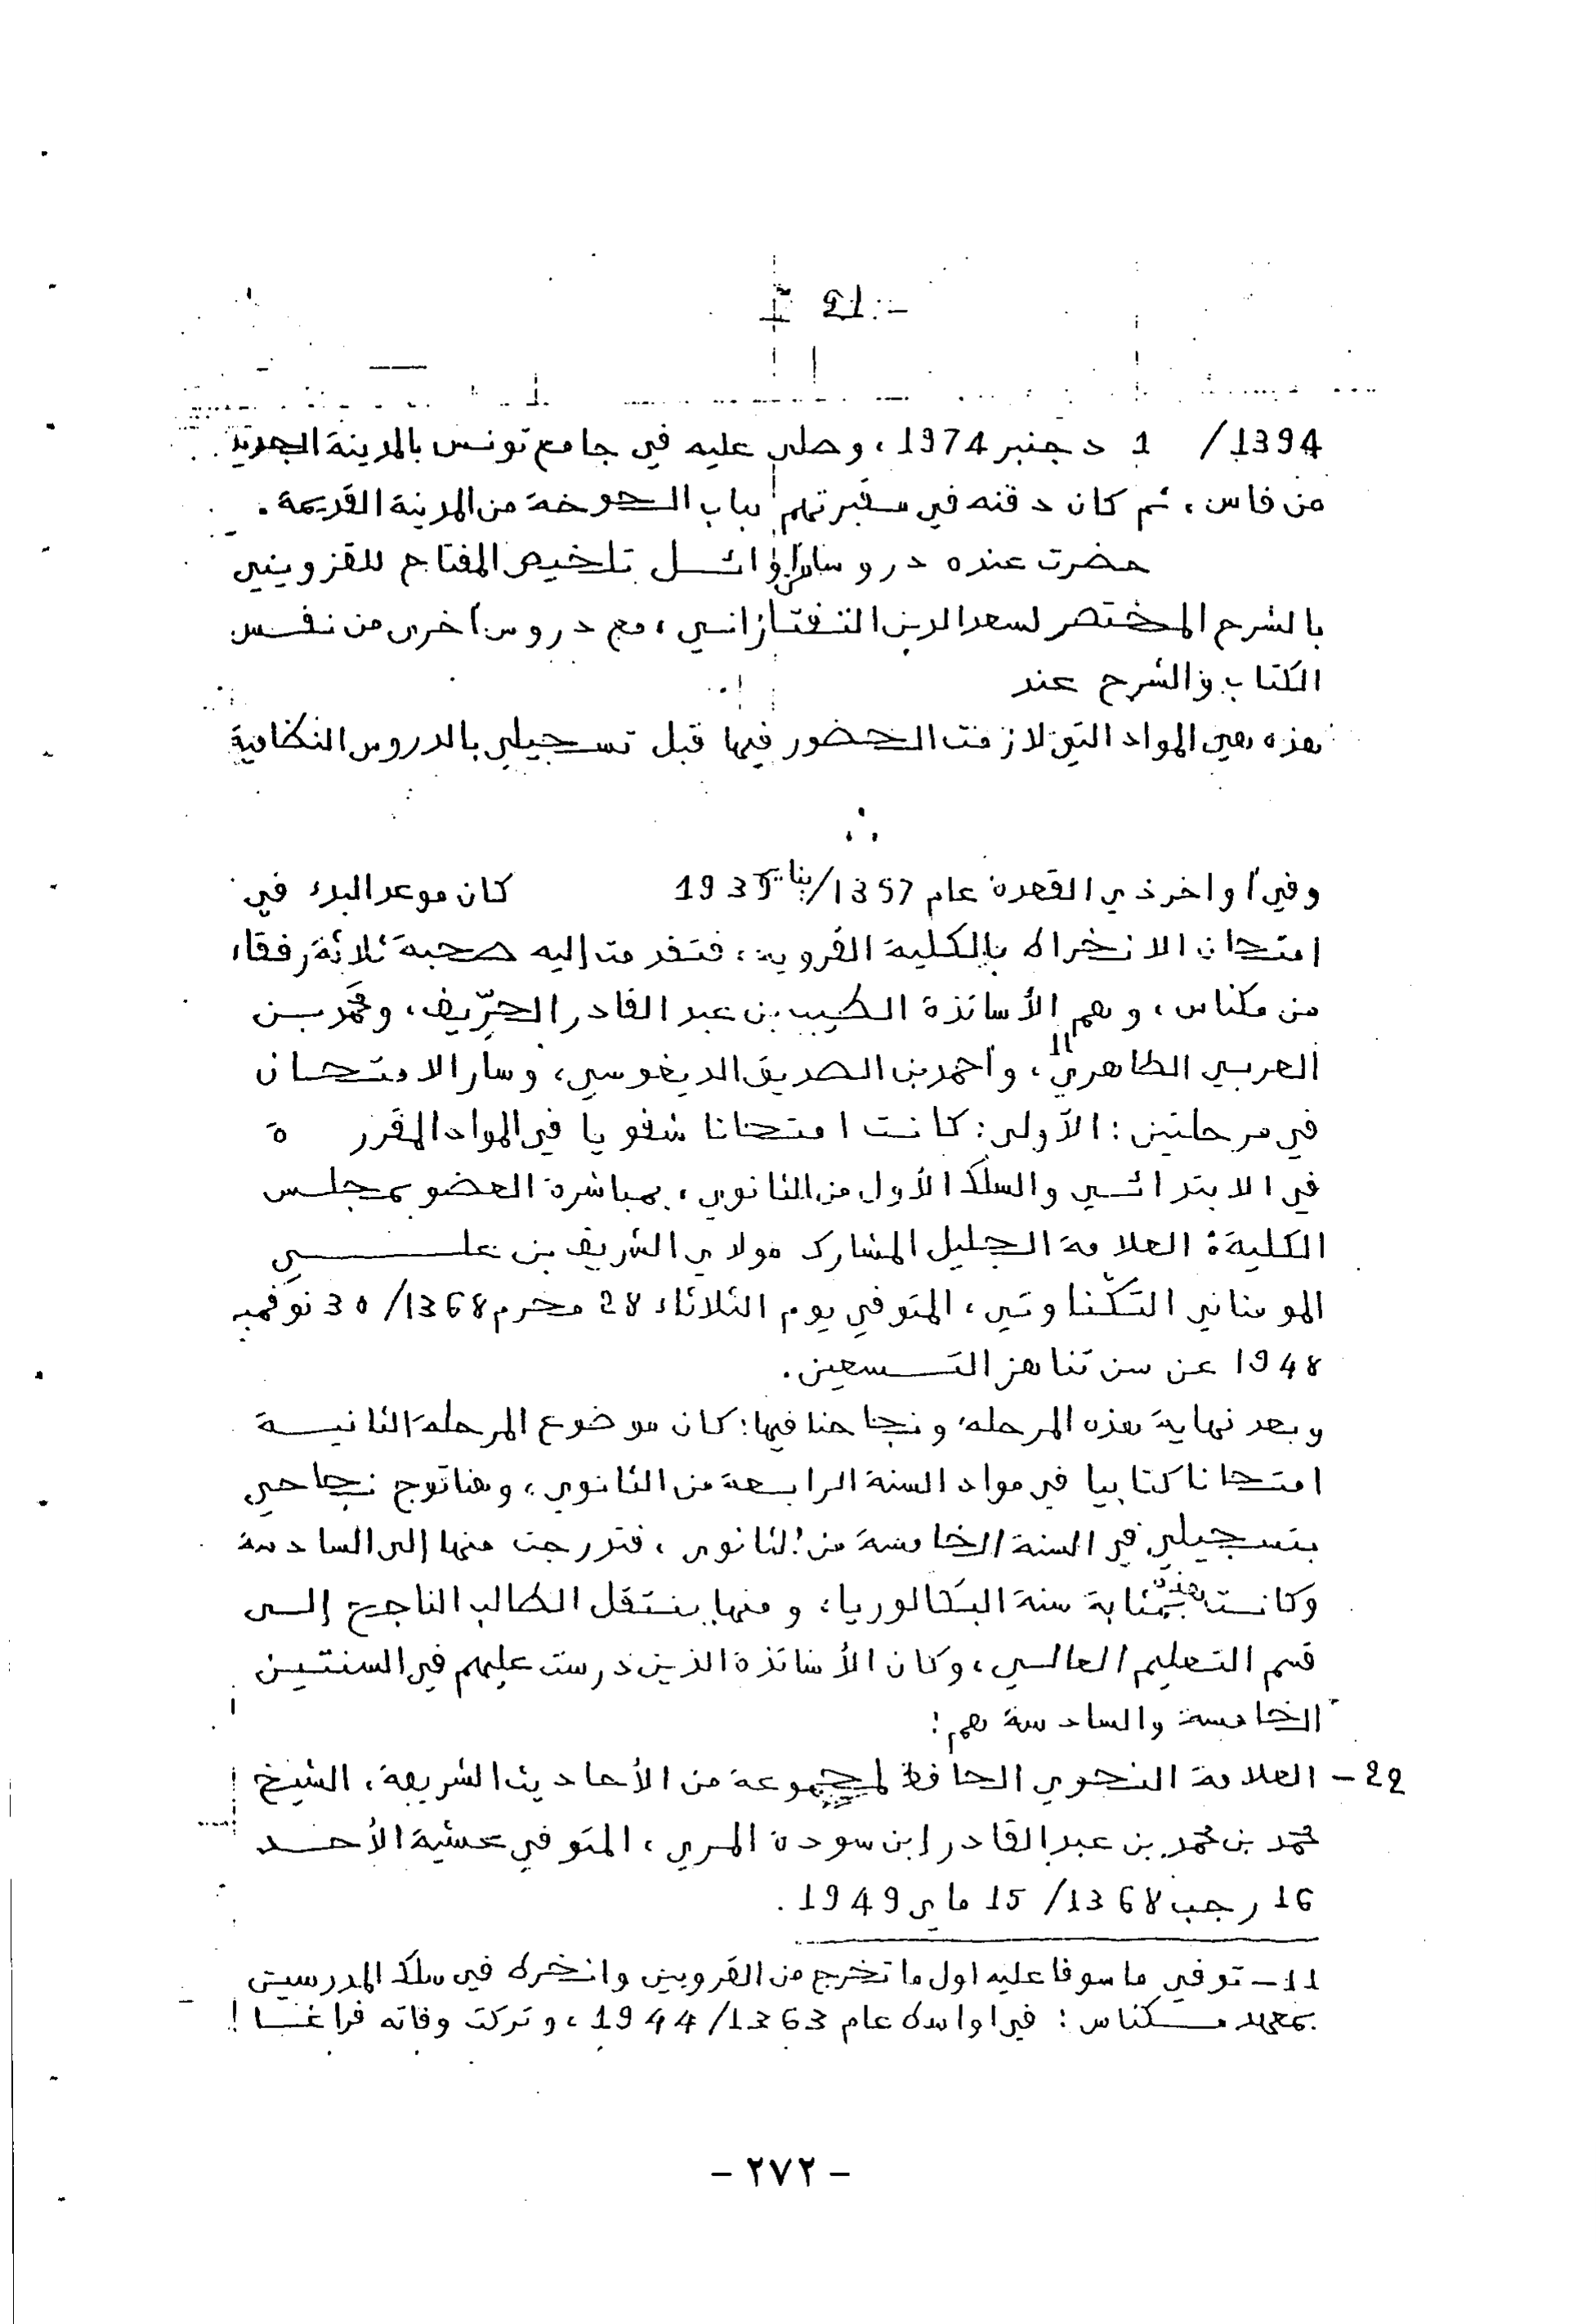 - 21 -
1394 / 1 دجنبر 1974، وصلي عليه في جامع تونس بالمدينة الجديدة
من فاس، ثم كان دفنه في مقبرتهم بباب الخوخة من المدينة القديمة.
حضرت عنده دروسا من أوائل تلخيص المفتاح للقزويني
بالشرح المختصر لسعد الدين التفتازاني، مع دروس أخرى من نفس
الكتاب والشرح عند
هذه هي المواد التي لازمت الحضور فيها قبل تسجيلي بالدروس النظامية
وفي أواخر ذي القعدة عام 1357/ يناير 1939 كان موعد البدء في
امتحان الانخراط بالكلية القروية، فتقدمت إليه صحبة ثلاثة رفقاء
من مكناس، وهم الأساتذة الطيب بن عبد القادر الحرّيف، ومحمد بن
العربي الطاهري 11، وأحمد بن الصديق الديغوسي، وسار الامتحان
في مرحلتين: الأولى: كانت امتحانا شفويا في المواد المقررة
في الابتدائي والسلك الأول من الثانوي، بمباشرة العضو بمجلس
الكلية: العلامة الجليل المشارك مولاي الشريف بن علي
التكناوتي، المتوفي يوم الثلاثاء 28 محرم 1368/ 30 نوفمبر
1948 عن سن تناهز التسعين.
وبعد نهاية هذه المرحلة، ونجاحنا فيها: كان موضوع المرحلة الثانية
امتحانا كتابيا في مواد السنة الرابعة من الثانوي، وهنا توج نجاحي
بتسجيلي في السنة الخامسة من الثانوي، فتدرجت منها إلى السادسة
وكانت هذه بمثابة سنة البكالوريا، ومنها ينتقل الطالب الناجح إلى
قسم التعليم العالي، وكان الأساتذة الذين درست عليهم في السنتين
الخامسة والسادسة هم:
22 - العلامة النحوي الحافظ لمجموعة من الأحاديث الشريفة، الشيخ
محمد بن محمد بن عبد القادر ابن سودة المري، المتوفي عشية الأحد
16 رجب 1368/ 15 ماي 1949.
11 - توفي مأسوفا عليه اول ما تخرج من القرويين وانخرط في سلك المدرسين
بمعهد مكناس: في اواسط عام 1363/1944، وتركت وفاته فراغا!
- ٢٧٢ -